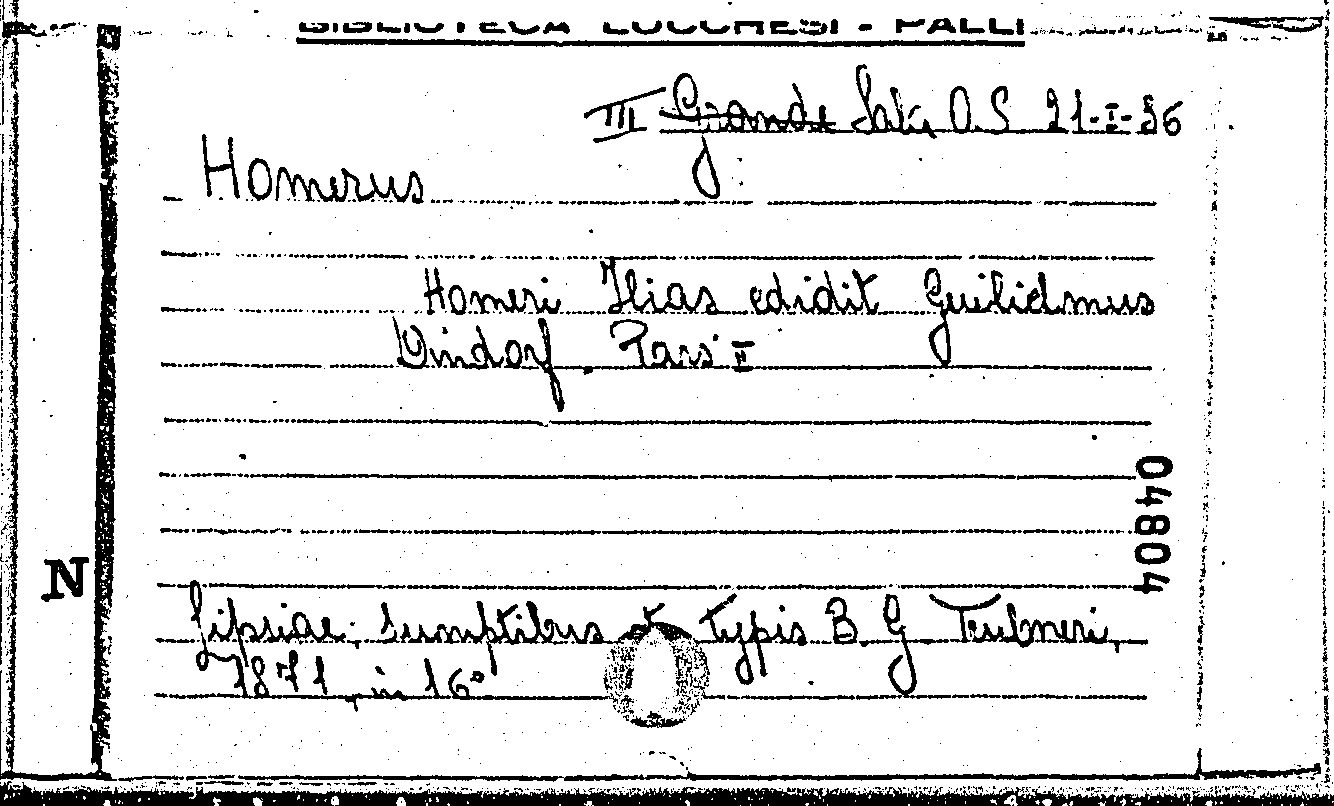 BIBLIOTECA LUCCHESI - PALLI
III Grande Sala O.S 21-I-36
Homerus
Homeri Ilias edidit Guilielmus
Dindorf. Pars II
04804
N
Lipsiae, sumptibus et typis B G Teubneri,
1871, in 16°